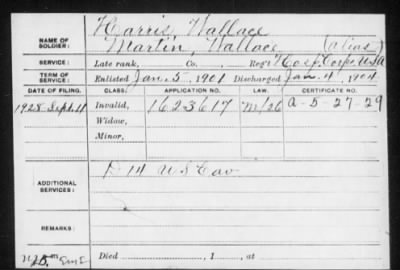 Harris Wallace
NAME OF SOLDIER: Martin, Wallace (alias)
SERVICE: Late rank, Co. Reg't Hosp. Corps, USA
TERM OF SERVICE: Enlisted Jan. 5, 1901 Discharged Jan. 4, 1904
DATE OF FILING. CLASS. APPLICATION NO. LAW. CERTIFICATE NO.
1928 Sept. 11 Invalid, 1623617 M/26 A-5-27-29
Widow,
Minor,
D 14 U S Cav
ADDITIONAL SERVICES:
REMARKS:
Died , 1 , at